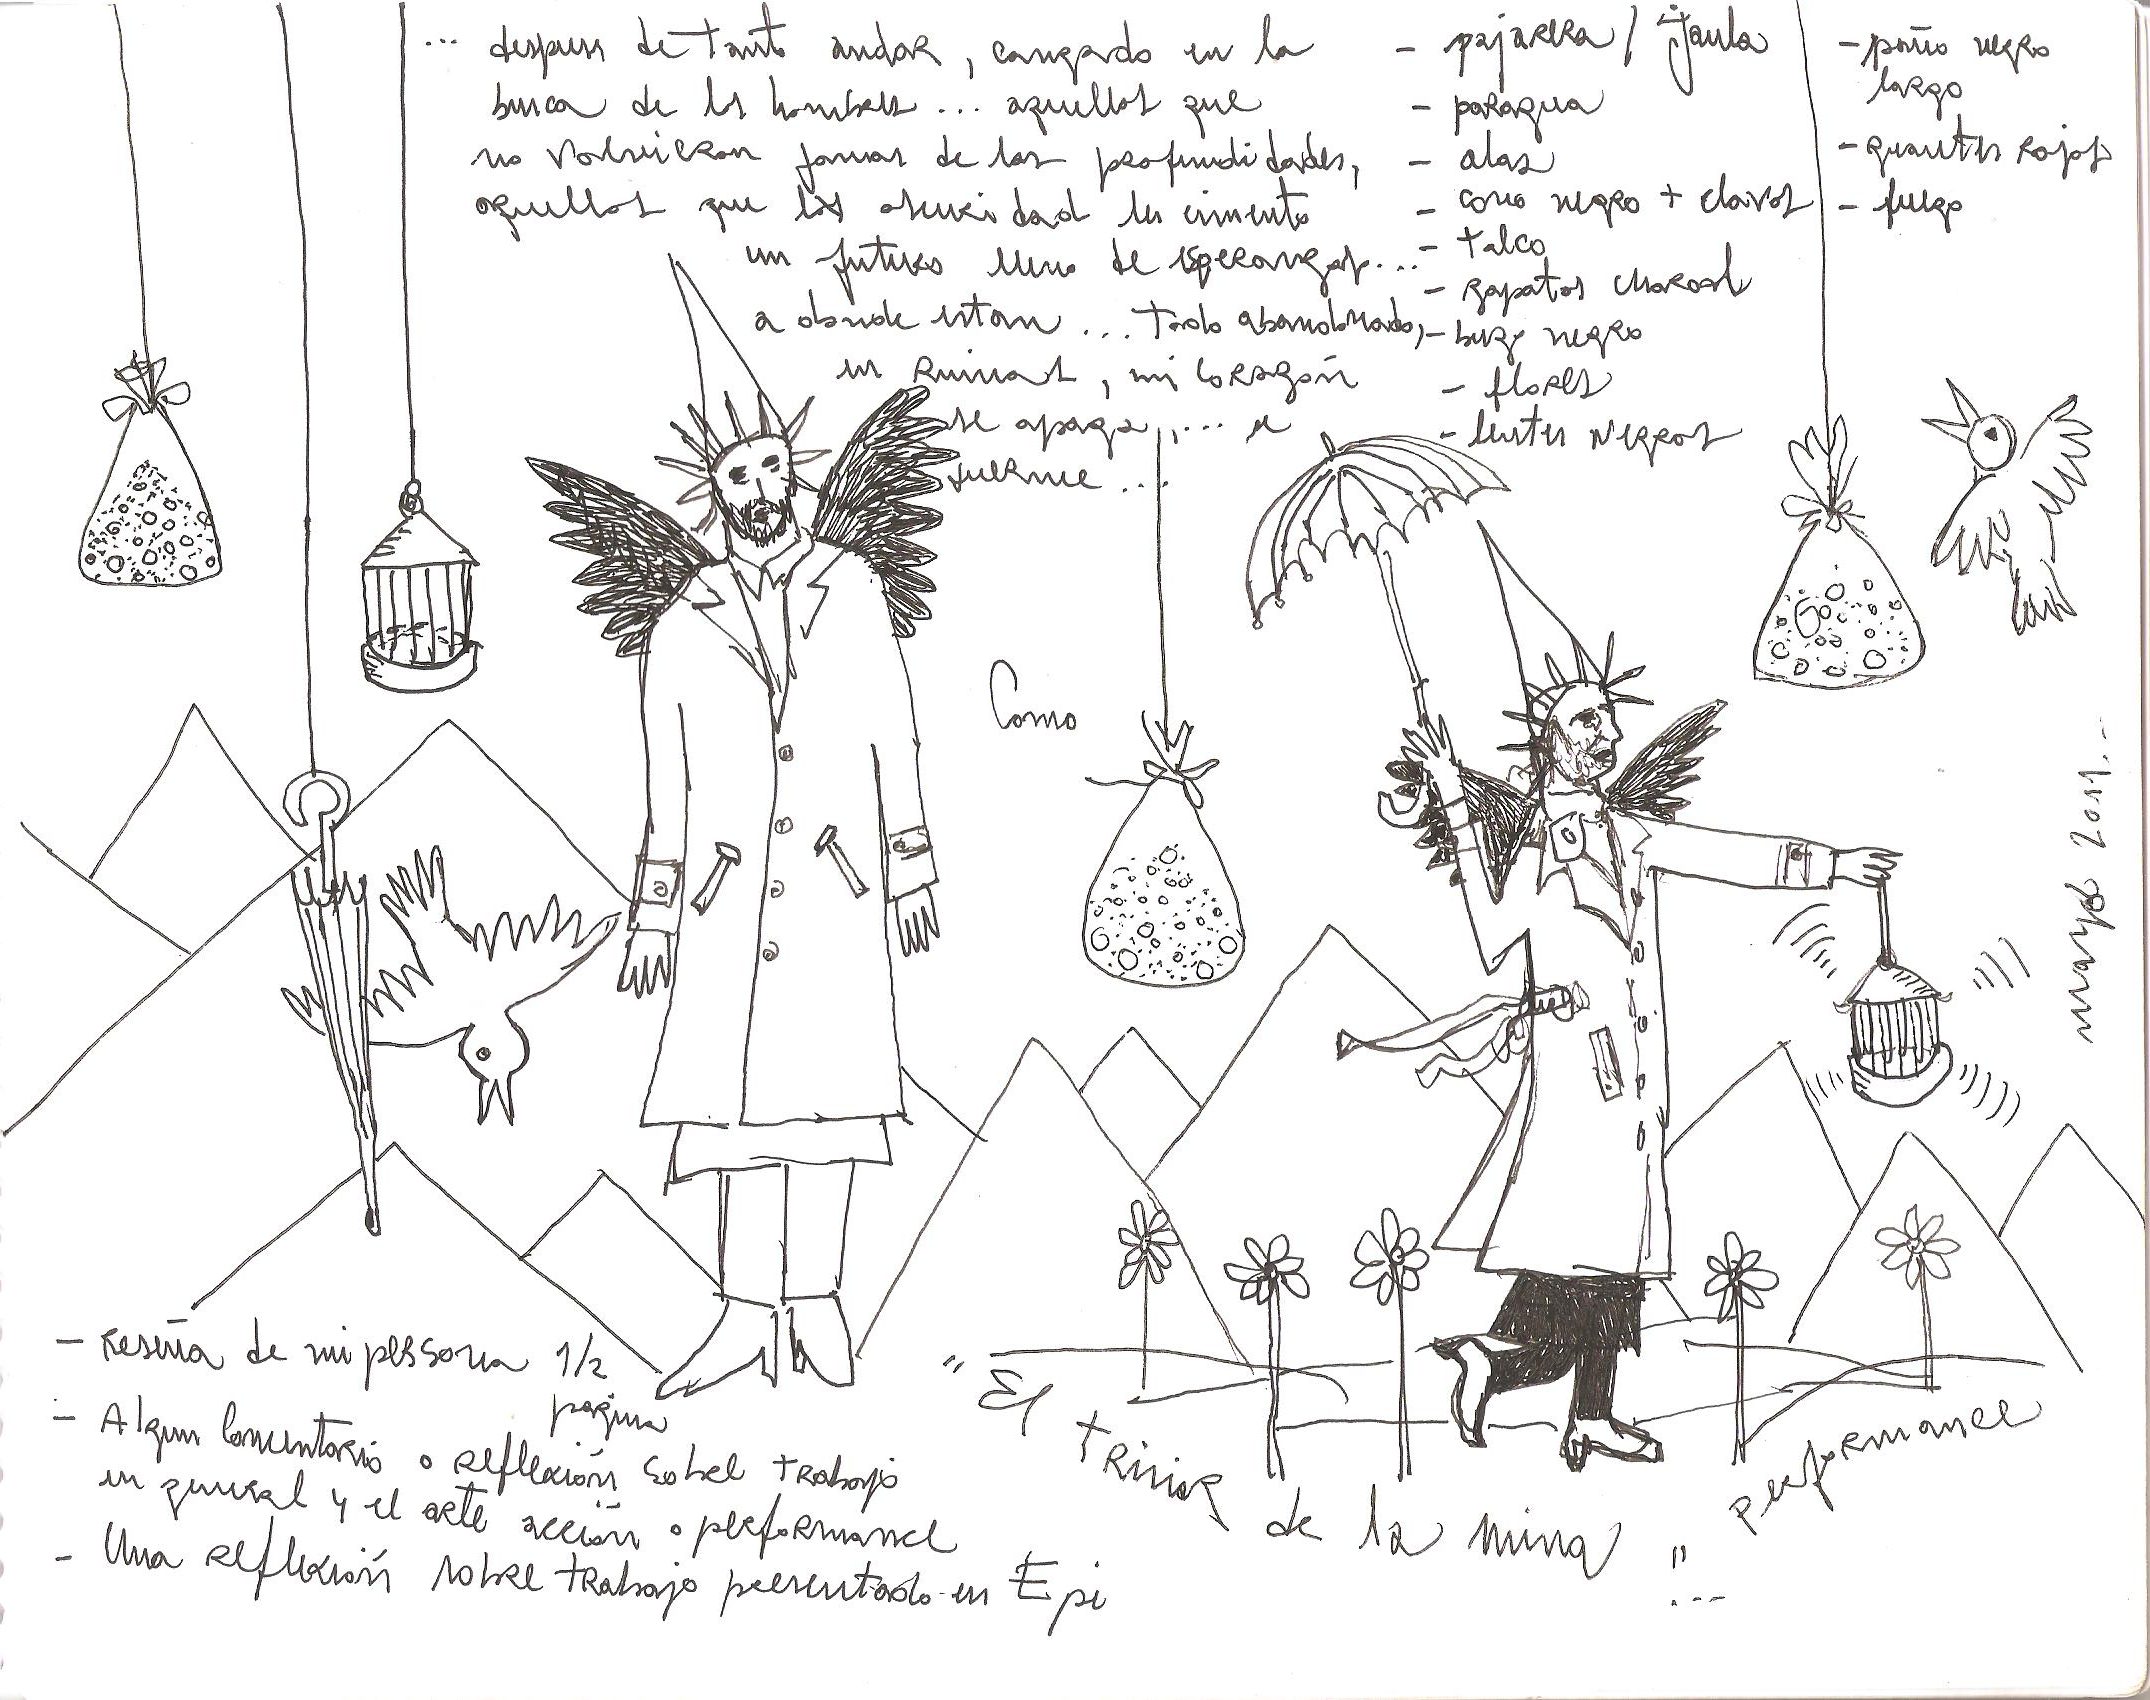 ... despues de tanto andar, cansado en la
busca de los hombres ... aquellos que
no volvieron jamas de las profundidades,
aquellos que la oscuridad les
un futuro lleno de esperanzas...
a donde estan ... todo abandonado,
en ruinas, mi corazón
se apaga ,... se
duerme ...
- pajarera / Jaula
- paragua
- alas
- cono negro + clavos
- talco
- zapatos charol
- buzo negro
- flores
- lentes negros
- paño negro
largo
- guantes rojos
- fuego
Como
mayo 2011..
- Reseña de mi persona 1/2
pagina
- Algun comentario o reflexión sobre trabajo
en general y el arte acción o performance
- Una reflexión sobre trabajo presentado en Epi
"El trinar de la mina" performance
...